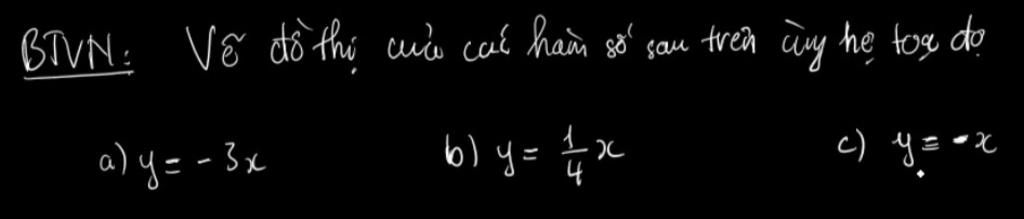 BTVN: Vẽ đồ thị của các hàm số sau trên cùng hệ toạ độ
a) y = -3x b) y = 1/4 x c) y = -x